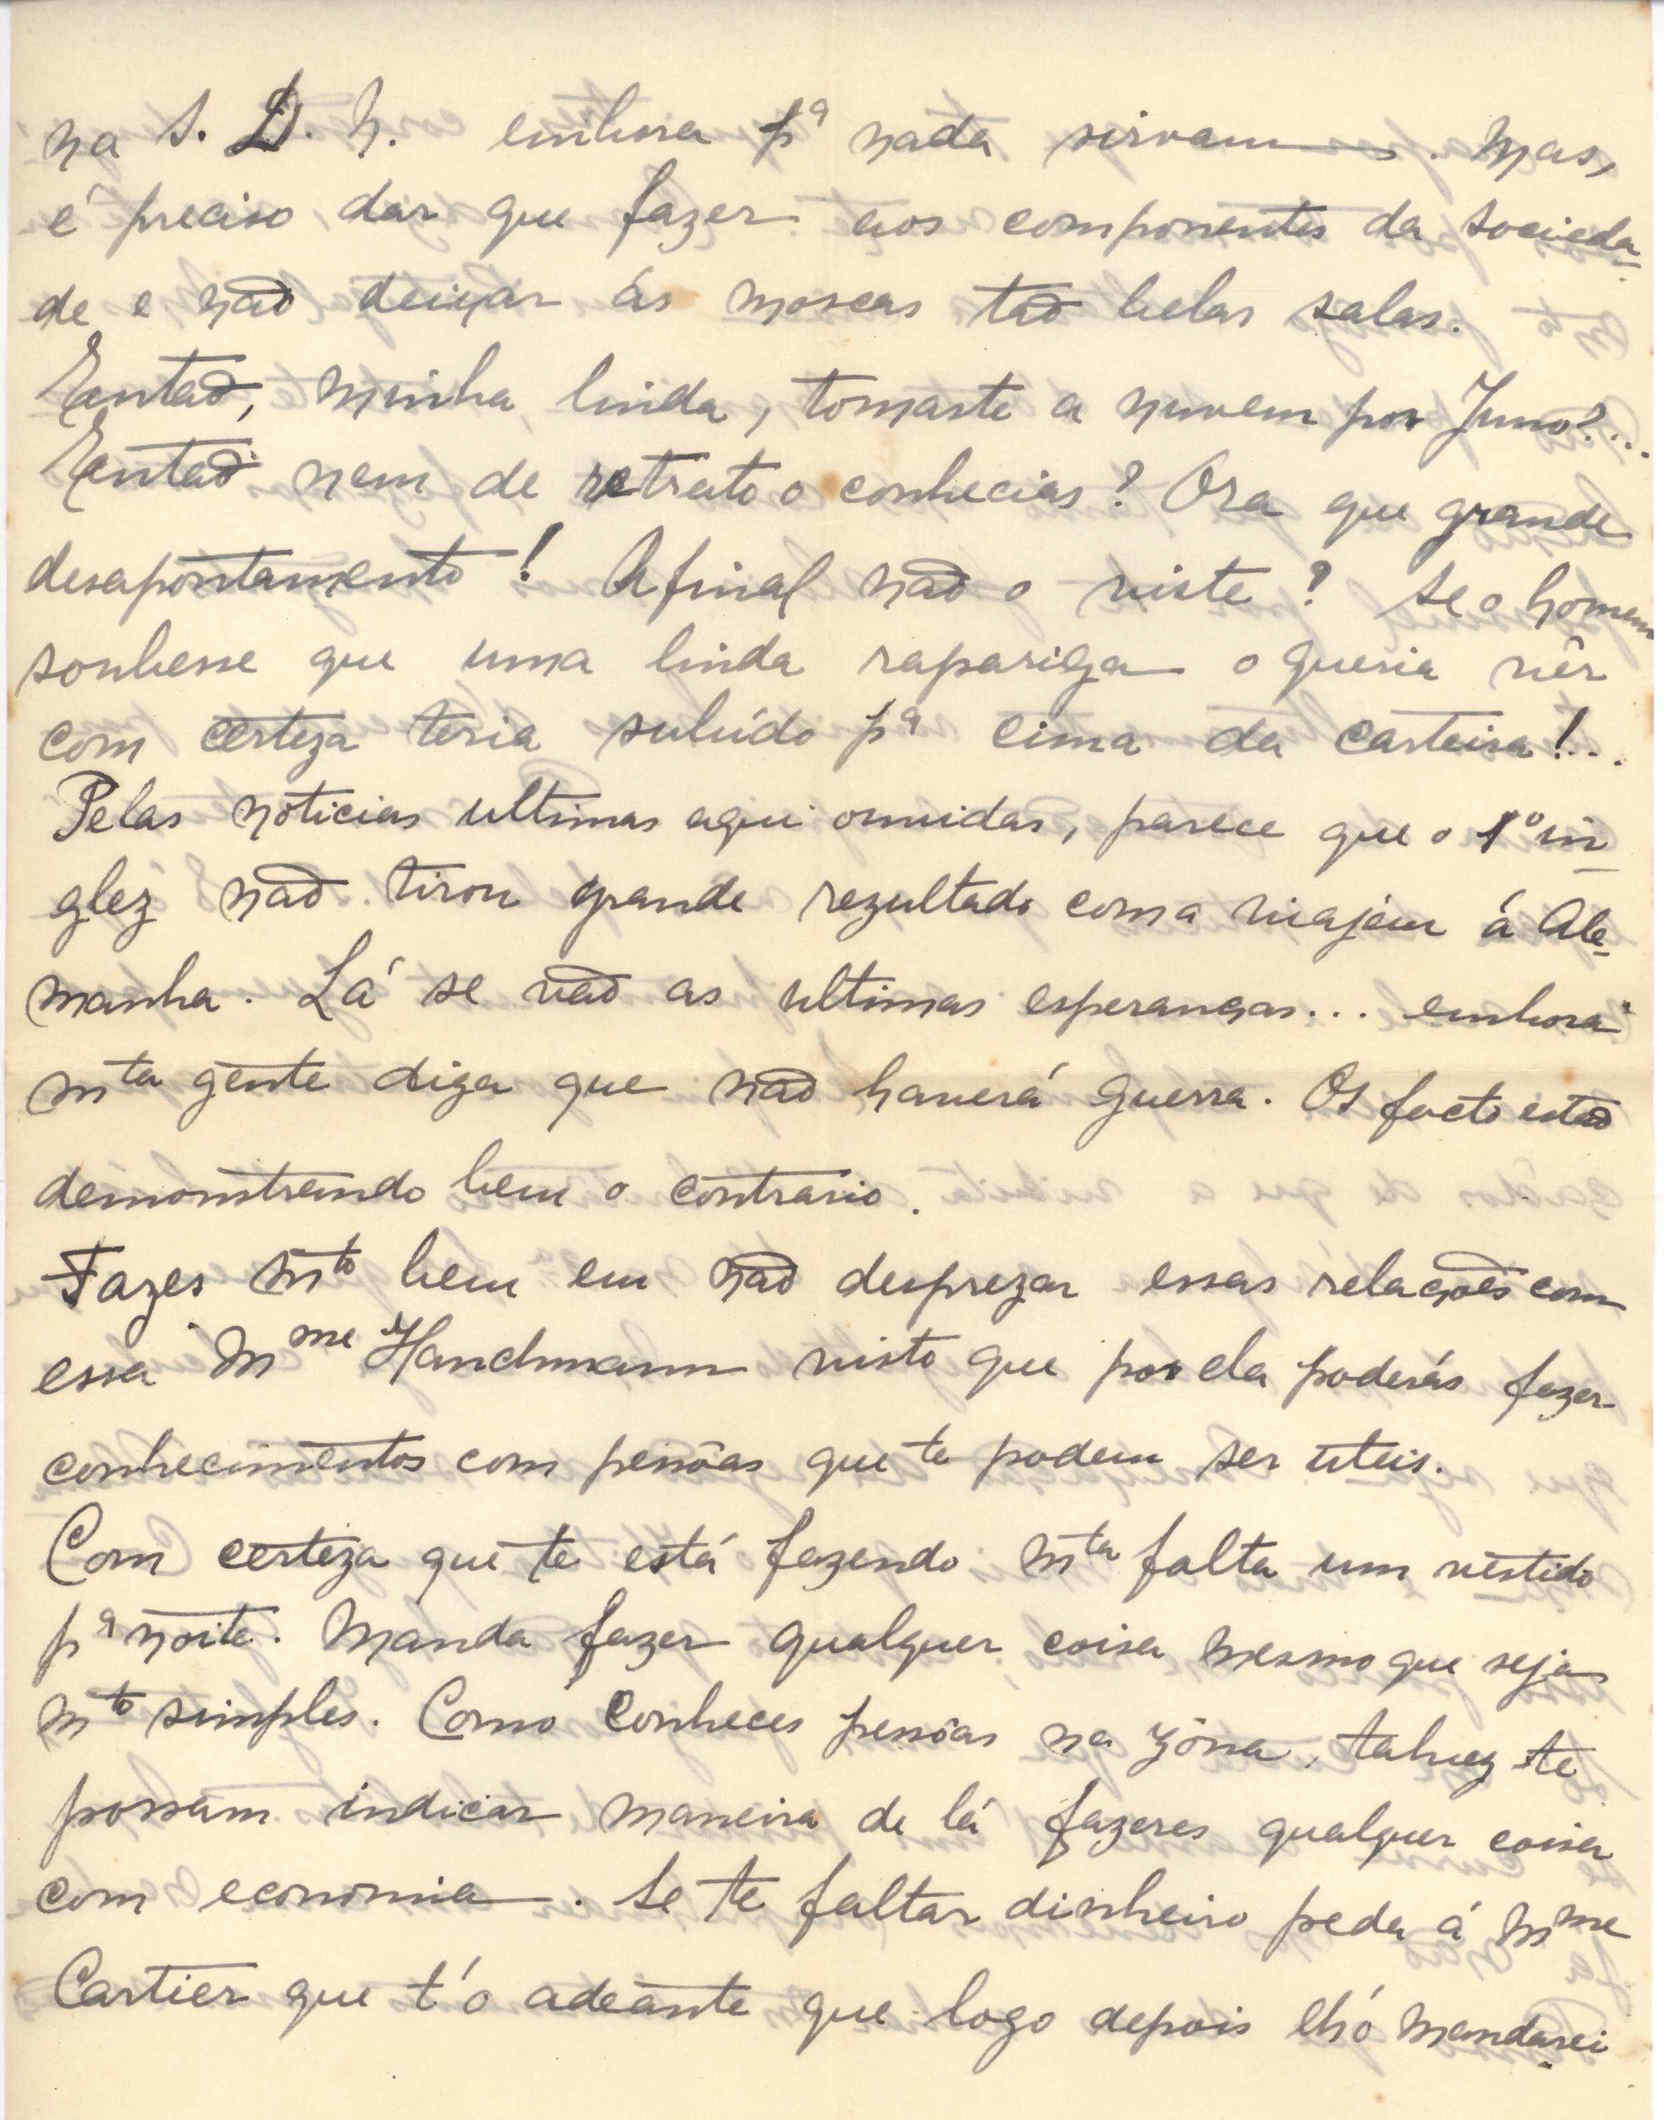 na S. D. N. embora pª nada sirvam. Mas,
é preciso dar que fazer aos componentes da socieda-
de e não deixar ás moscas tão belas salas.
Então, minha linda, tomaste a nuvem por Juno?...
Então nem de retrato o conhecias? Ora que grande
desapontamento! Afinal não o viste? Se o homem
soubesse que uma linda rapariga o queria vêr
com certeza teria subído pª cima da carteira!...
Pelas noticias ultimas aqui ouvidas, parece que o 1º in-
glez não tirou grande rezultado com a viajem á Ale-
manha. Lá se vão as ultimas esperanças... embora
mta gente diga que não haverá guerra. Os facto estão
demonstrando bem o contrario.
Fazes mto bem em não desprezar essas relações com
essa Mme Hanchmann visto que por ela poderás fazer
conhecimentos com pessôas que te podem ser uteis.
Com certeza que te está fazendo mta falta um vestido
pª noite. Manda fazer qualquer coisa mesmo que seja
mto simples. Como conheces pessôas na zôna, talvez te
possam indicar maneira de lá fazeres qualquer coisa
com economia. Se te faltar dinheiro peda á Mme
Cartier que t'o adeante que logo depois lhó mandarei